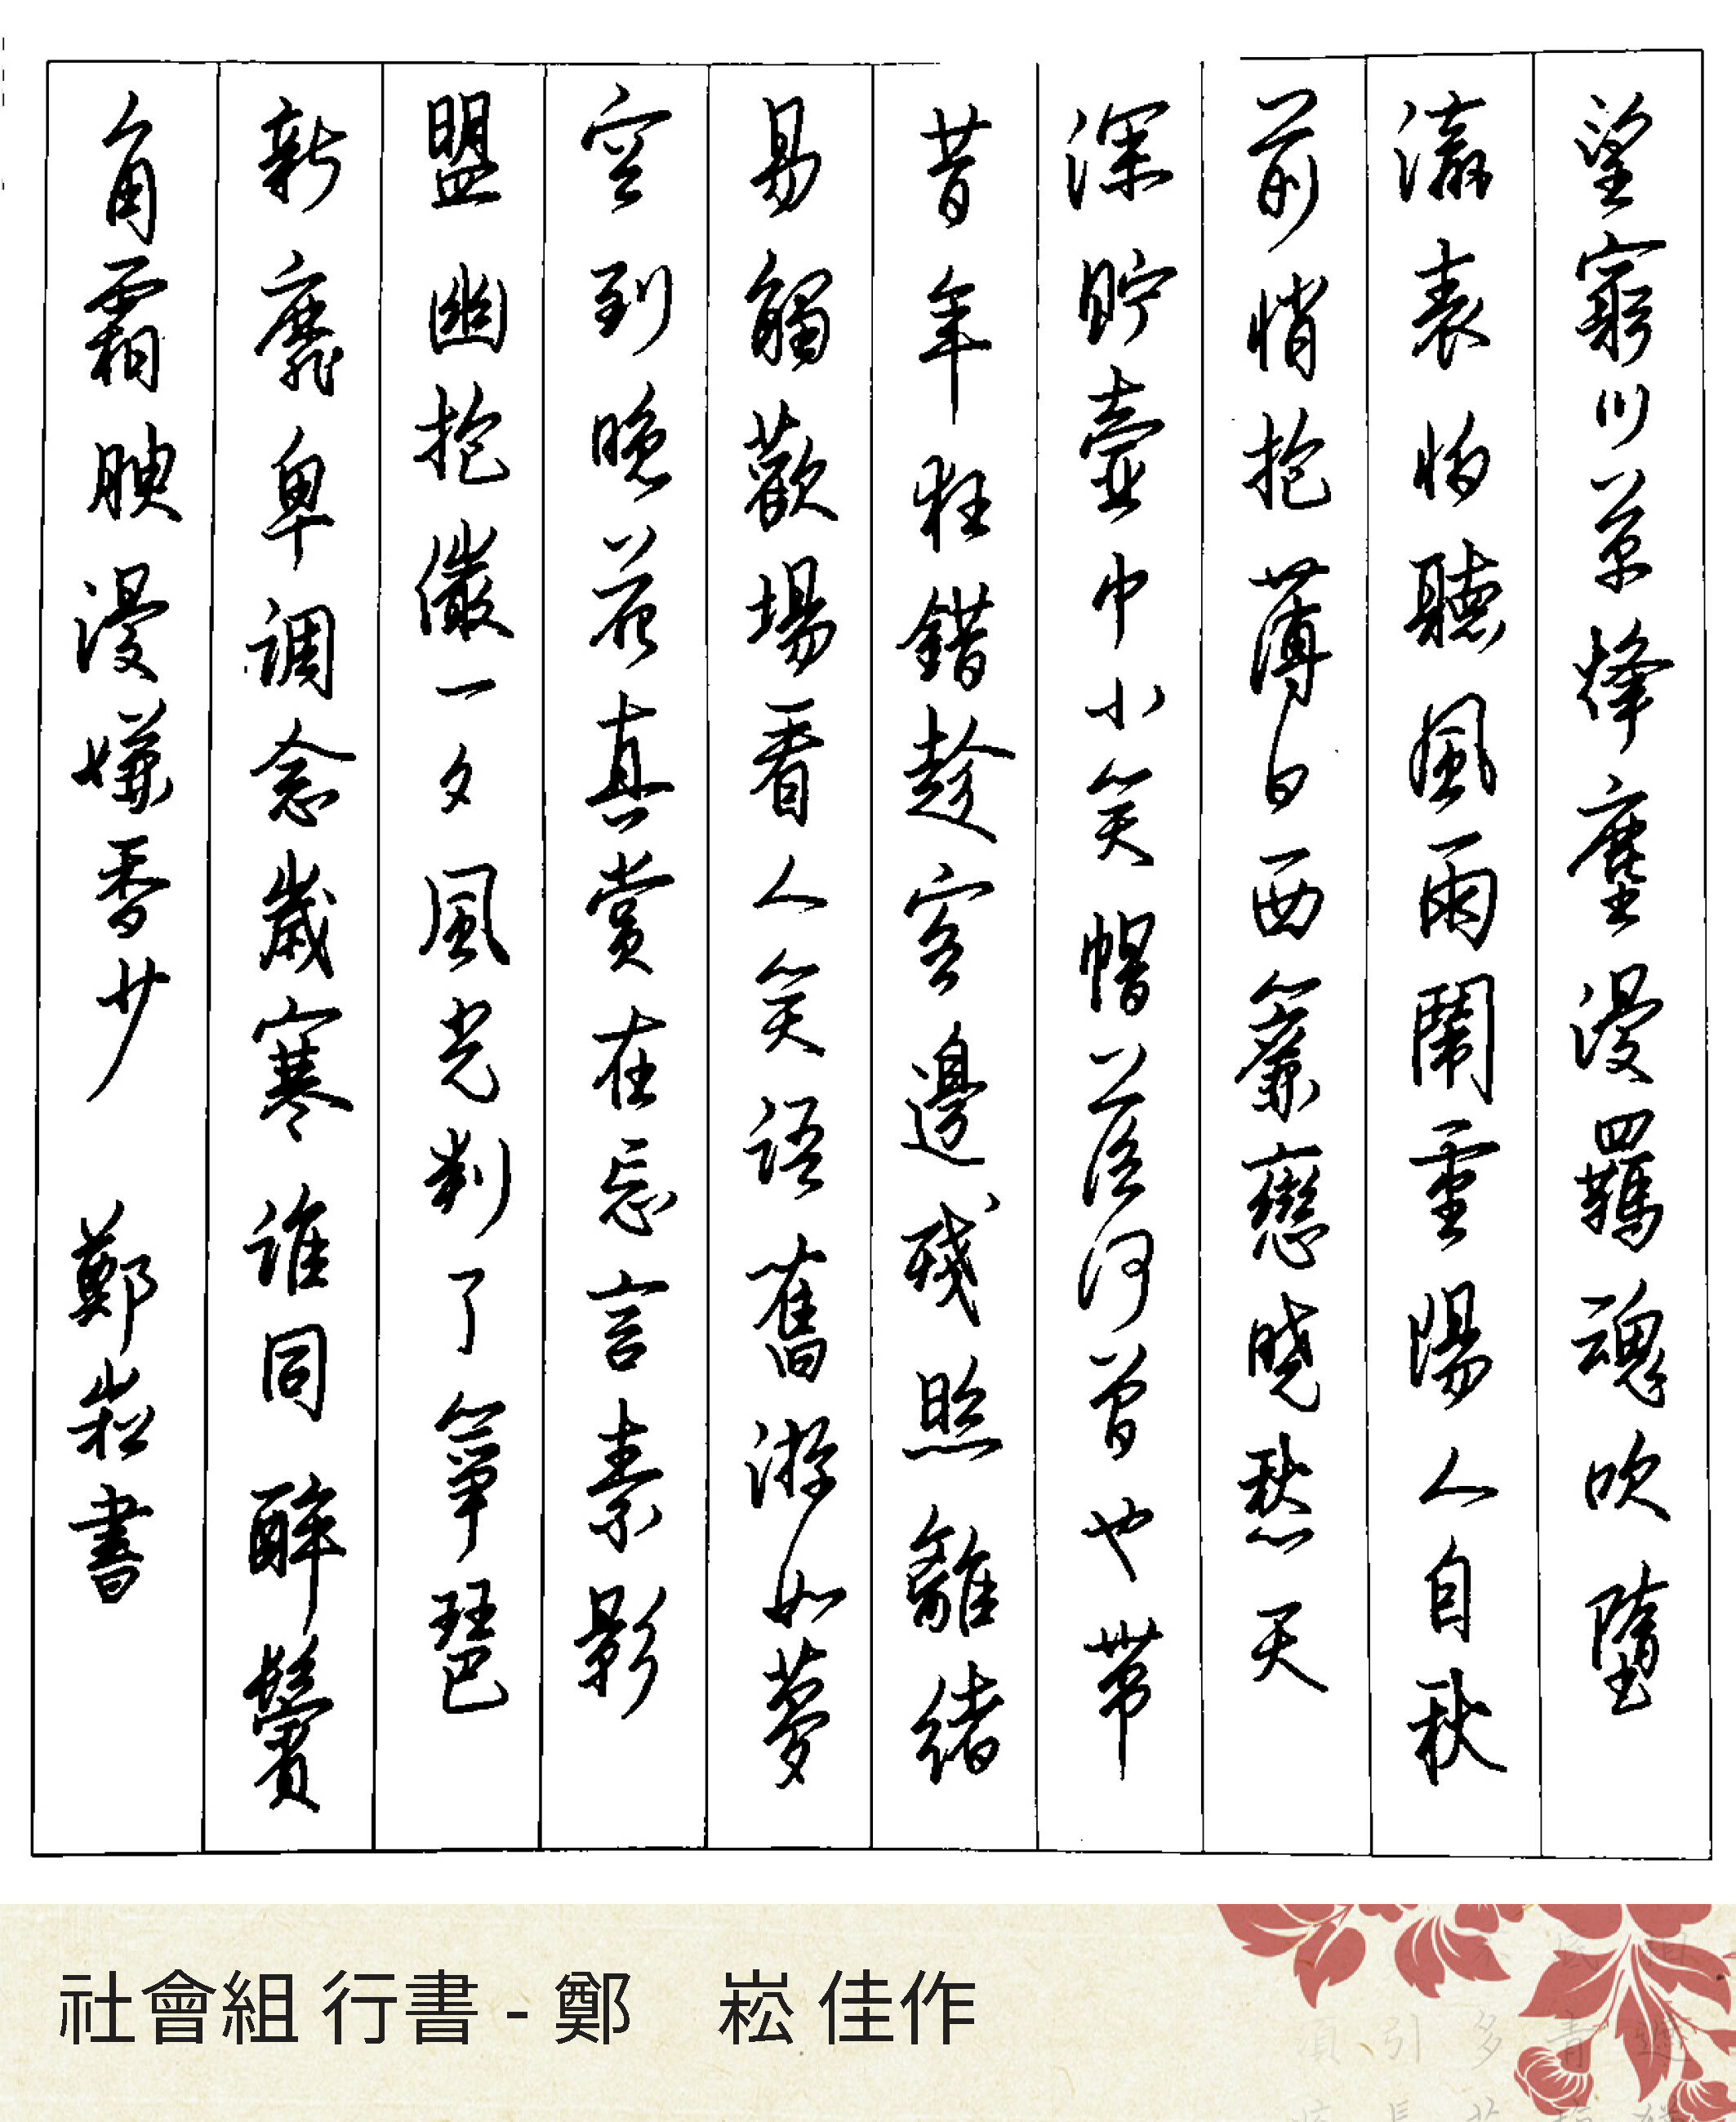 望窮川原烽塵漫羈魂吹墮
瀛表怕聽風雨鬧重陽人自秋
前悄抱薄日西簾戀曉愁天
深貯壺中小笑帽簷落何曾也帶
昔年狂錯趁客邊殘照離緒
易觸歡場看人笑語舊游如夢
空到晚花真賞在忘言素影
盟幽抱儼一夕風光判了箏琶
新靡卑調念歲寒誰同醉鬢
角霜腴漫嫌香少 鄭崧書
社會組 行書 - 鄭 崧 佳作